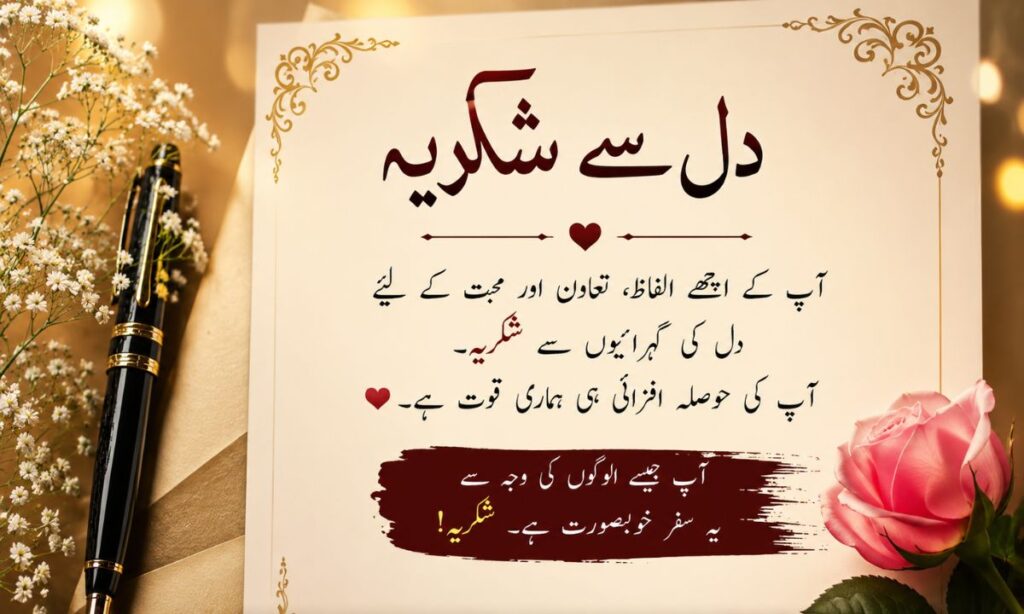 دل سے شکریہ
آپ کے اچھے الفاظ، تعاون اور محبت کے لیئے
دل کی گہرائیوں سے شکریہ۔
آپ کی حوصلہ افزائی ہی ہماری قوت ہے۔
آپ جیسے الوگوں کی وجہ سے
یہ سفر خوبصورت ہے۔ شکریہ!